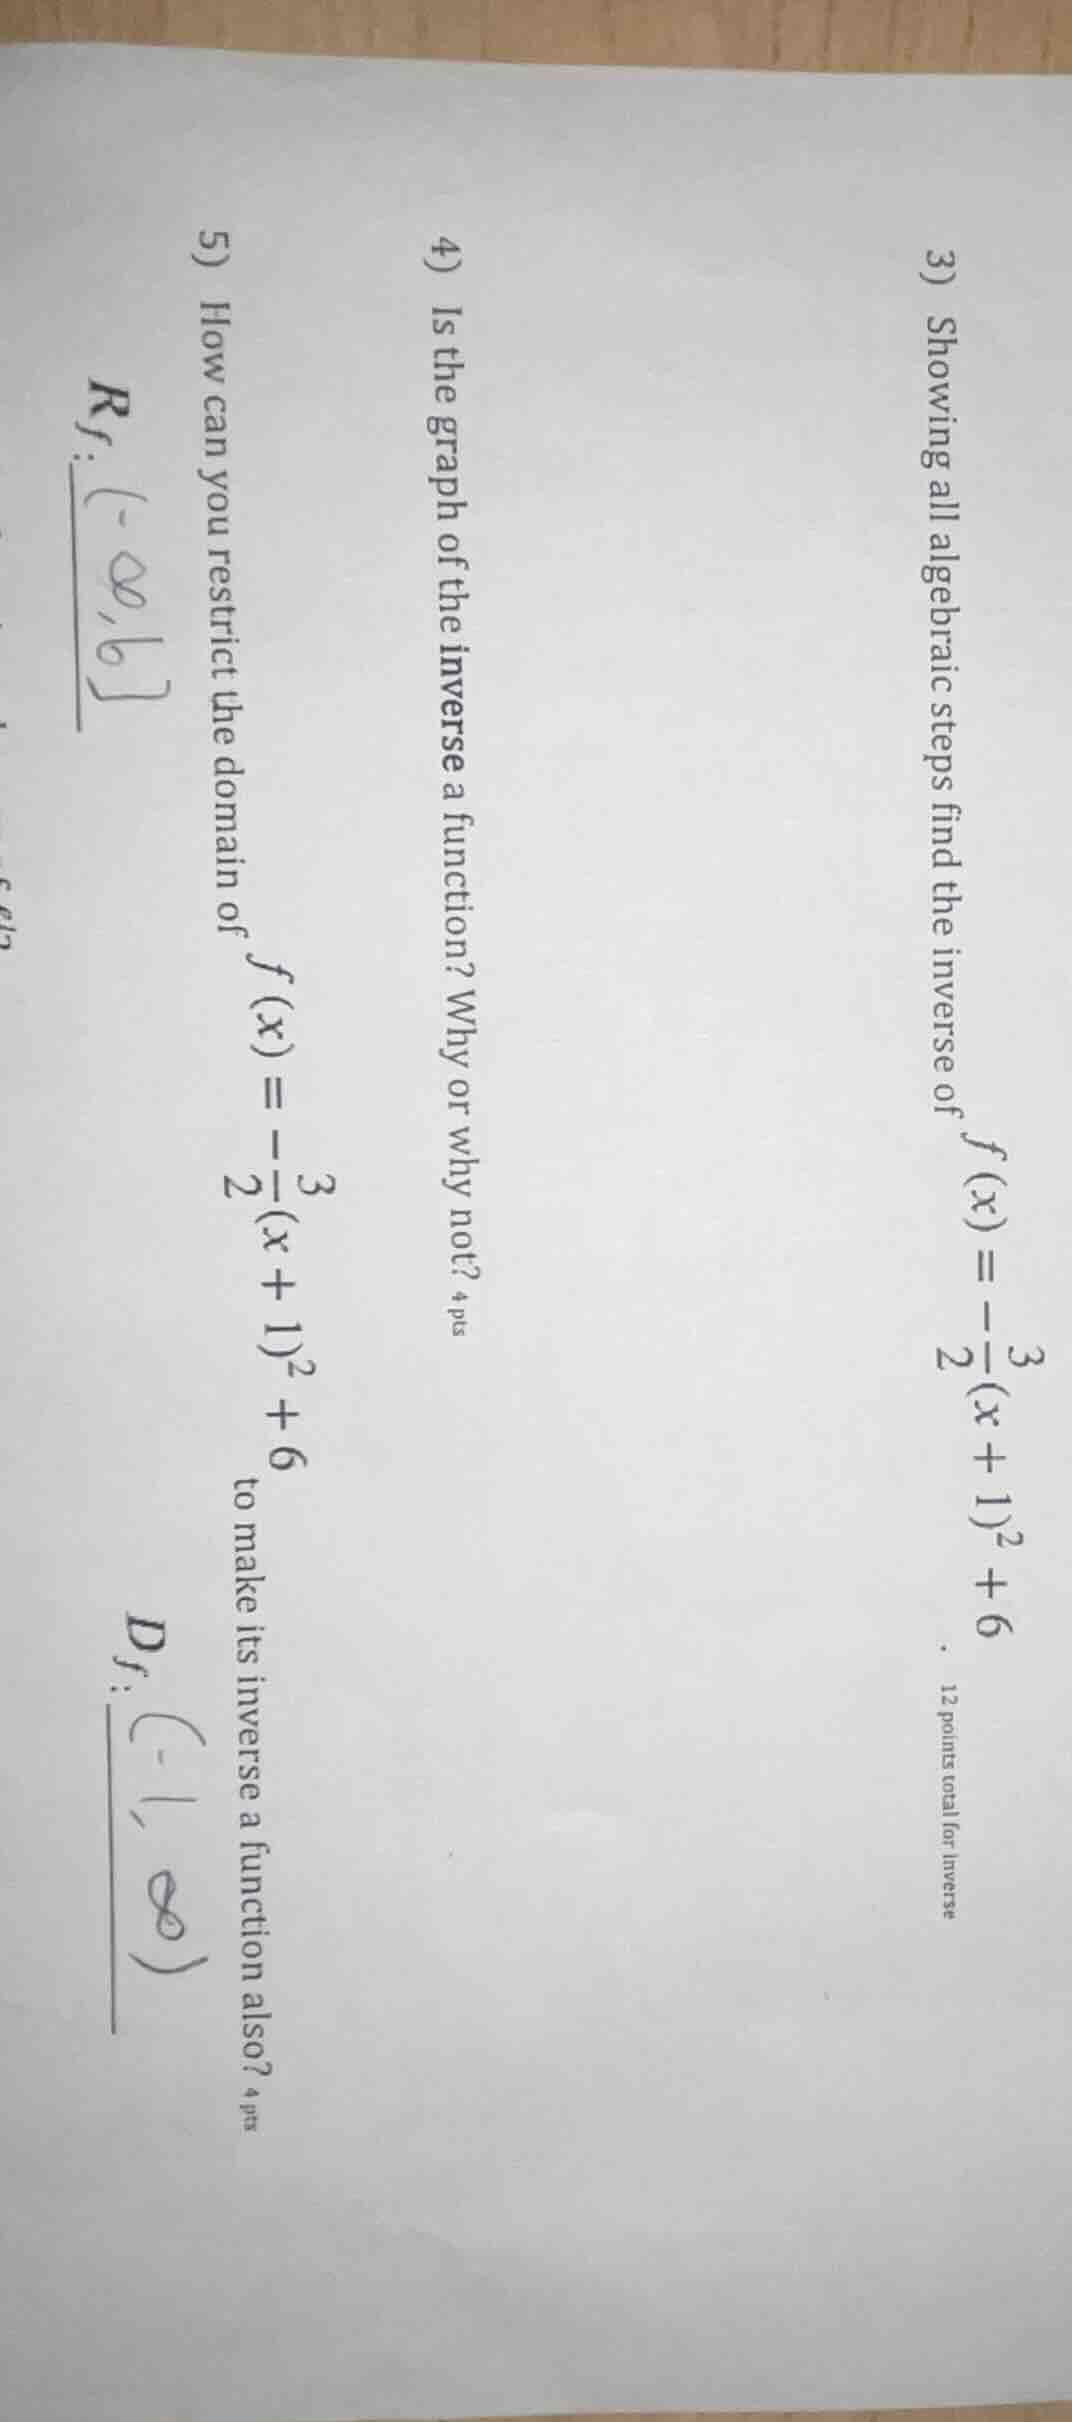 3) Showing all algebraic steps find the inverse of f(x) = −3/2(x + 1)² + 6 . 12 points total for inverse
4) Is the graph of the inverse a function? Why or why not? 4 pts
5) How can you restrict the domain of f(x) = −3/2(x + 1)² + 6 to make its inverse a function also? 4 pts
R_f: (-∞,6] D_f: (-1, ∞)